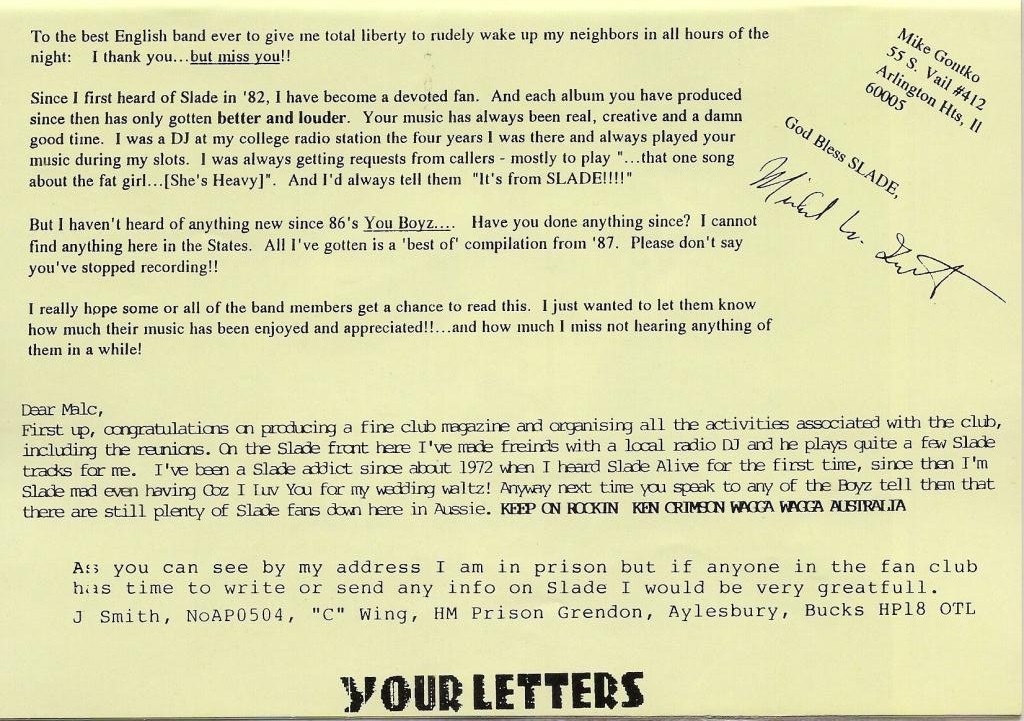 To the best English band ever to give me total liberty to rudely wake up my neighbors in all hours of the
night: I thank you...but miss you!!
Since I first heard of Slade in '82, I have become a devoted fan. And each album you have produced
since then has only gotten better and louder. Your music has always been real, creative and a damn
good time. I was a DJ at my college radio station the four years I was there and always played your
music during my slots. I was always getting requests from callers - mostly to play "...that one song
about the fat girl...[She's Heavy]". And I'd always tell them "It's from SLADE!!!!"
But I haven't heard of anything new since 86's You Boyz.... Have you done anything since? I cannot
find anything here in the States. All I've gotten is a 'best of' compilation from '87. Please don't say
you've stopped recording!!
I really hope some or all of the band members get a chance to read this. I just wanted to let them know
how much their music has been enjoyed and appreciated!!...and how much I miss not hearing anything of
them in a while!
Mike Gontko
55 S. Vail #412
Arlington Hts, Il
60005
God Bless SLADE,
Dear Malc,
First up, congratulations on producing a fine club magazine and organising all the activities associated with the club,
including the reunions. On the Slade front here I've made freinds with a local radio DJ and he plays quite a few Slade
tracks for me. I've been a Slade addict since about 1972 when I heard Slade Alive for the first time, since then I'm
Slade mad even having Coz I Luv You for my wedding waltz! Anyway next time you speak to any of the Boyz tell them that
there are still plenty of Slade fans down here in Aussie. KEEP ON ROCKIN KEN CRIMSON WAGGA WAGGA AUSTRALIA
As you can see by my address I am in prison but if anyone in the fan club
has time to write or send any info on Slade I would be very greatfull.
J Smith, NoAP0504, "C" Wing, HM Prison Grendon, Aylesbury, Bucks HP18 OTL
YOUR LETTERS